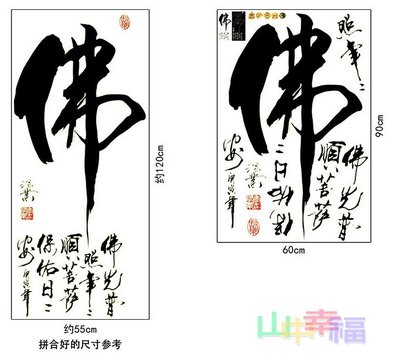 佛
佛光普
照年々
順菩萨
保佑日々
安
约120cm
约55cm
拼合好的尺寸参考
佛
照年々
佛光普
順菩萨
保佑
日々
安
90cm
60cm
山中幸福